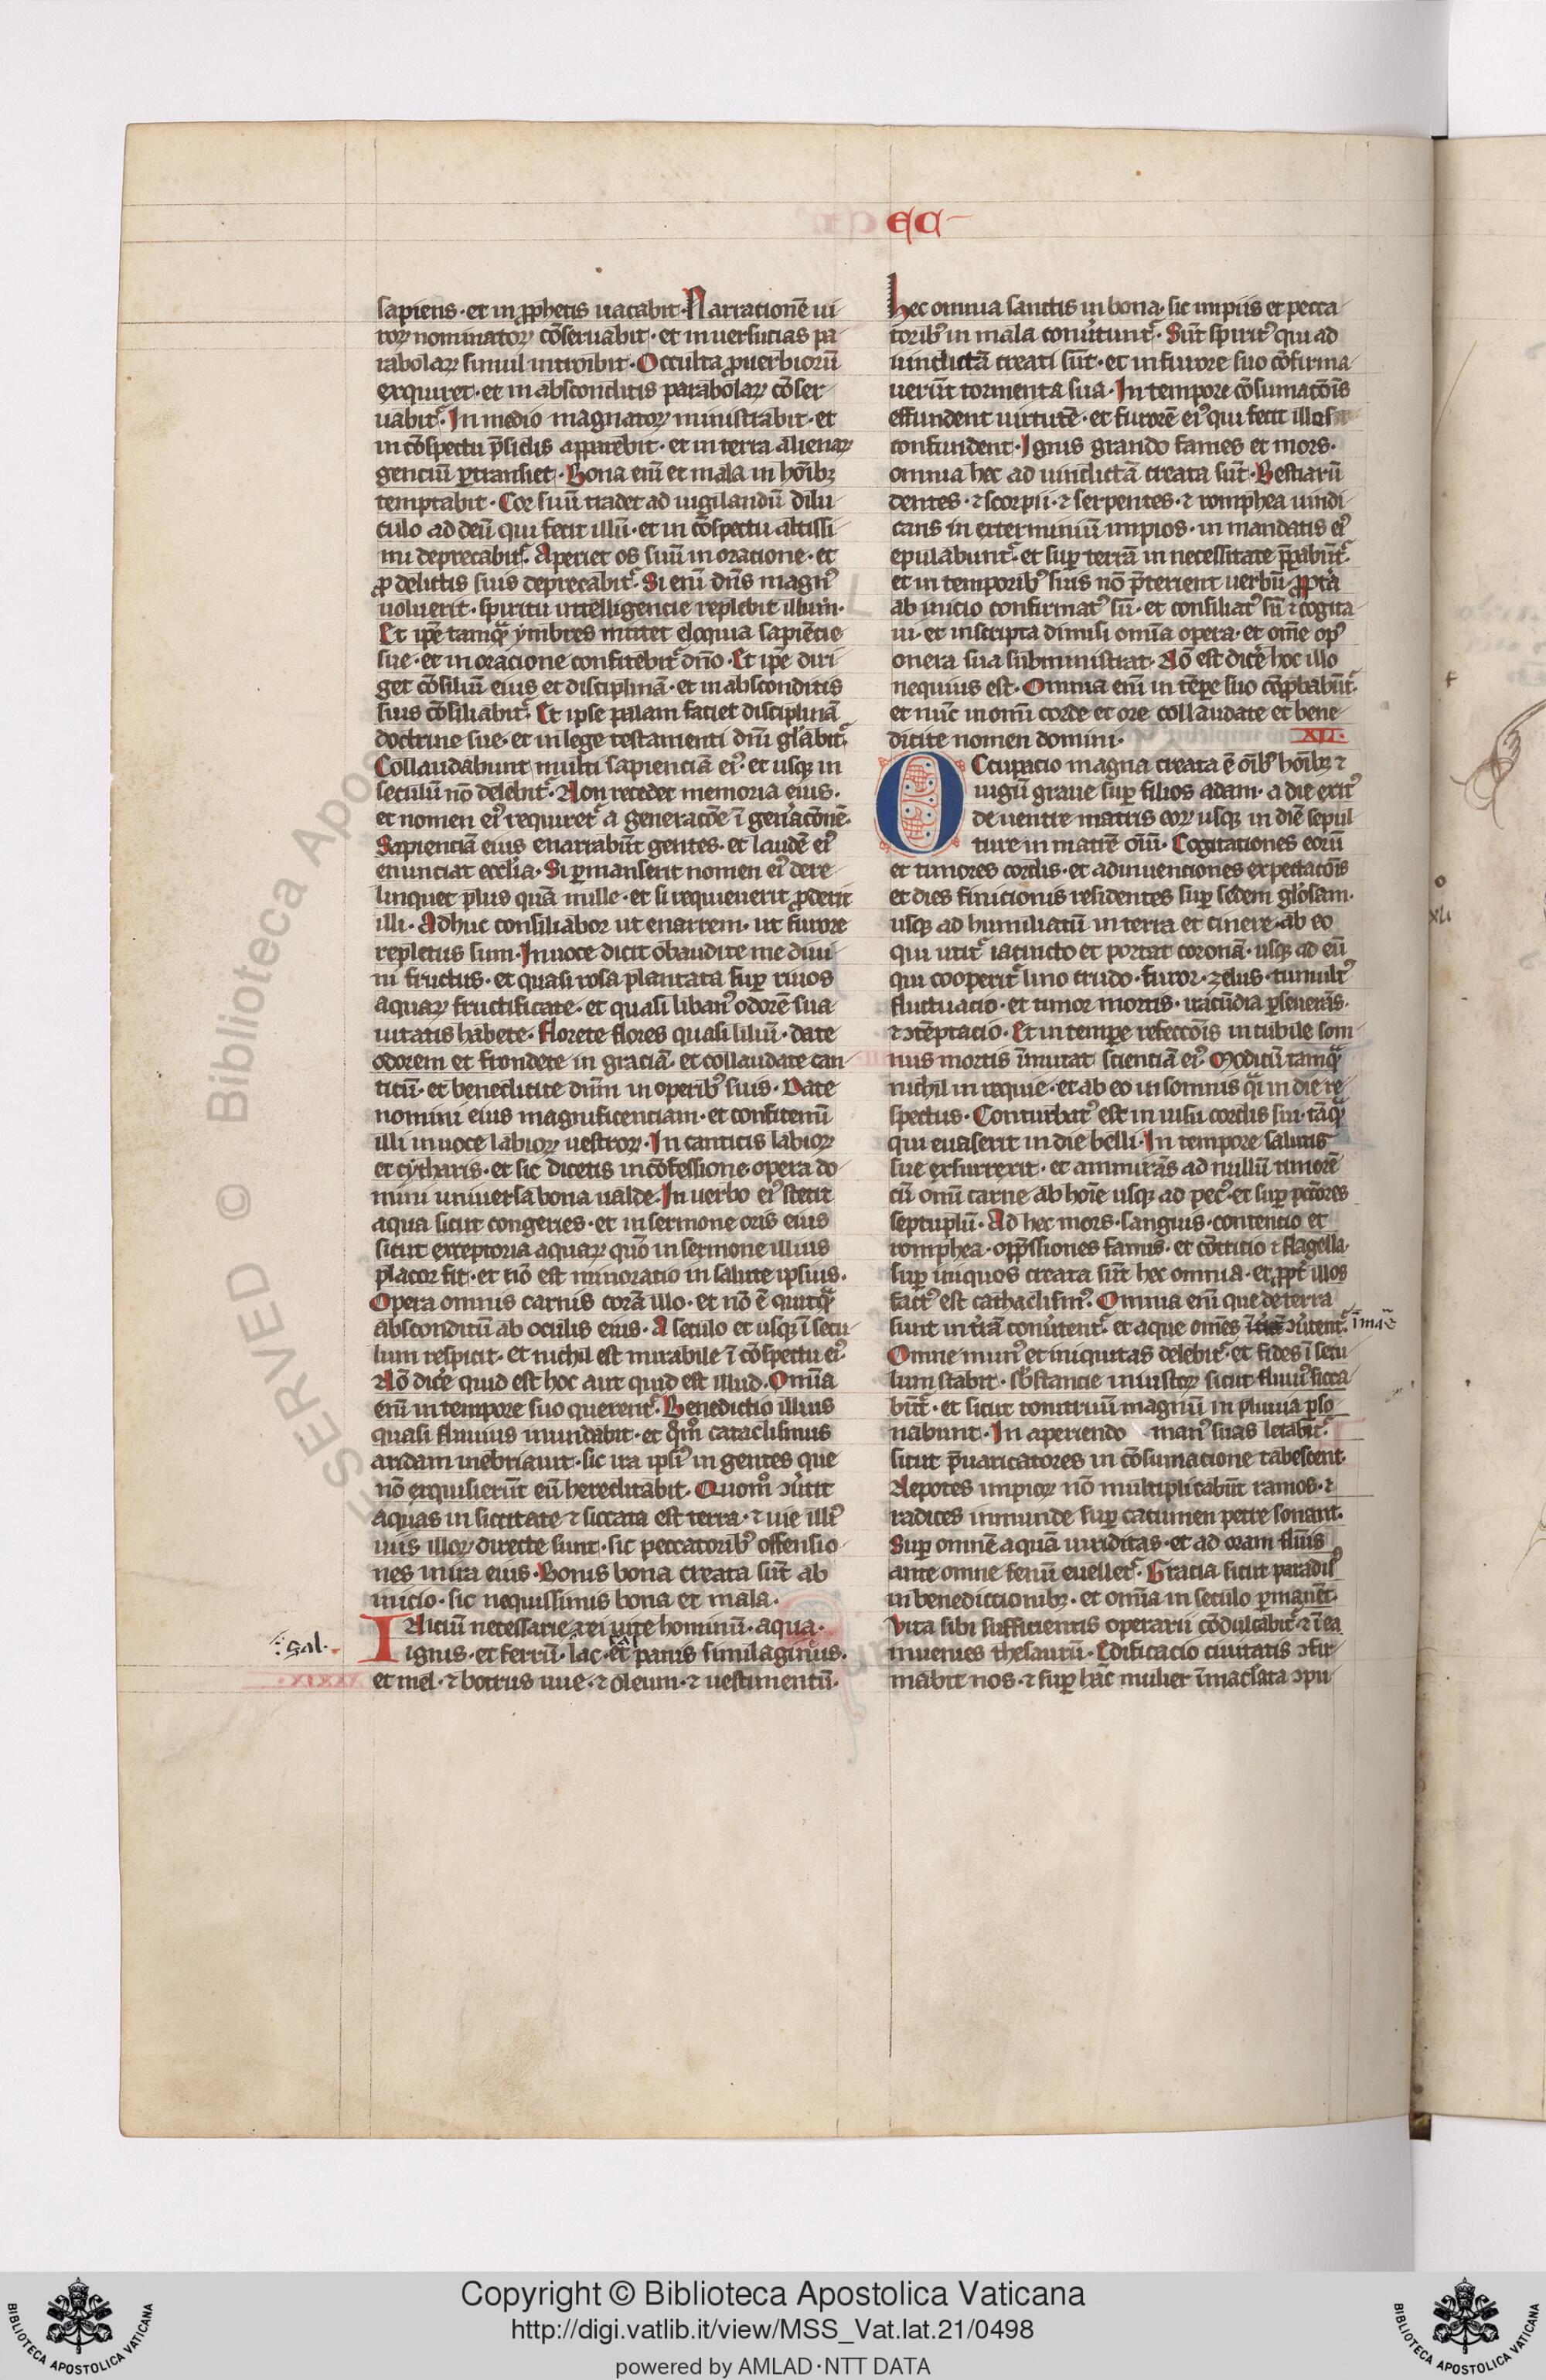 EC
sapiens · et in ꝓphetis uacabit · Narrationē ui
roꝝ nominatoꝝ ꝯ̄seruabit · et in uersucias pa
rabolaꝝ simul introibit · Occulta ꝓuerbiorū
exquiret · et in absconditis parabolaꝝ cōser
uabit᷑ · In medio magnatoꝝ ministrabit · et
in cōspectu p̄sidis apparebit · et in terra alienaꝝ
genciū ꝑtransiet · Bona eni᷑ et mala in hōibꝫ
temptabit · Cor suū tradet ad uigilandū dilu
culo ad deū qui fecit illū · et in cōspectu altissi
mi deprecabit᷑ · Aperiet os suū in oratione · et
ꝓ delictis suis deprecabit᷑ · Si enī dn̄s magnꝰ
uoluerit · spiritu intelligencie replebit illum ·
Et ip̄e tamqᷓ ymbres mittet eloquia sapiēcie
sue · et in oracione confitebit᷑ dn̄o · Et ip̄e diri
get cōsiliū eius et disciplinā · et in absconditis
suis cōsiliabit᷑ · Et ipse palam faciet disciplinā
doctrine sue · et in lege testamenti dn̄i gl̄abit᷑ ·
Collaudabunt multi sapienciā eiꝰ · et usqꝫ in
seculū nō delebit᷑ · Non recedet memoria eius ·
et nomen eiꝰ requiret᷑ a generacōe ī gen̄acōnē ·
Sapienciā eius enarrabūt gentes · et laudē eiꝰ
enunciat eccl̄ia · Si ꝑmanserit nomen eiꝰ dere
linquet plus quā mille · et si requieuerit ꝓderit
illi · Adhuc consiliabor ut enarrem · ut furore
repletus sum · In uoce dicit obaudite me diui
ni fructus · et quasi rosa plantata suꝑ riuos
aquaꝝ fructificate · et quasi libanꝰ odorē sua
uitatis habete · Florete flores quasi liliū · date
odorem et frondete in graciā · et collaudate can
ticū · et benedicite dn̄m in operibꝰ suis · Date
nomini eius magnificenciam · et confitemī
illi in uoce labioꝝ uestroꝝ · In canticis labioꝝ
et cytharis · et sic dicetis in cōfessione · opera do
mini uniuersa bona ualde · In uerbo eiꝰ stetit
aqua sicut congeries · et in sermone oris eius
sicut exceptoria aquaꝝ quō in sermone illius
placor fit · et nō est minoratio in salute ipsius ·
Opera omnis carnis corā illo · et nō ē quicqᷓ
absconditū ab oculis eius · A seculo et usqꝫ ī secu
lum respicit · et nichil est mirabile ī cōspectu eiꝰ ·
Nō dicr̄e quid est hoc aut quid est illud · Omīa
enī in tempore suo querent᷑ · Benedictio illius
quasi fluuius inundabit · et qm̊ cataclismus
aridam inebriauit · sic ira ipsiꝰ in gentes que
nō exquisierūt eū hereditabit · Quom̊ ꝯu̓tit
aquas in siccitate ⁊ siccata est terra · ⁊ uie illiꝰ
uiis illoꝝ directe sunt · sic peccatoribꝰ offensio
nes in ira eius · Bonis bona creata sūt ab
inicio · sic nequissimis bona et mala ·
INiciū necessarie rei uite hominū · aqua ·
ignis · et ferrū · lac · et panis similagineus ·
sal ·
et mel · ⁊ botrus uue · ⁊ oleum · ⁊ uestimentū ·
hec omnia sanctis in bona · sic impiis et pecca
toribꝰ in mala conu̓tunt᷑ · Sūt spiritꝰ qui ad
uindictā creati sūt · et in furore suo cōfirma
uerūt tormenta sua · In tempore cōsumacōis
effundent uirtutē · et furorē eiꝰ qui fecit illos
confundent · Ignis grando fames et mors ·
omnia hec ad uindictā creata sūt · Bestiarū
dentes · ⁊ scorpii · ⁊ serpentes · ⁊ romphea uindi
cans in exterminiū impios · in mandatis eiꝰ
epulabunt᷑ · et suꝑ terrā in necessitate p̄pabūt᷑
et in temporibꝰ suis nō p̄terient uerbū · ꝓpt̄a
ab inicio confirmatꝰ sū · et consiliatꝰ sū ⁊ cogita
ui · et inscripta dimisi omīa opera · et om̄e opꝰ
onera sua subministrat · Nō est dicer̄ hoc illo
nequius est · Omnia enī in tēꝑe suo cōꝓbabūt᷑ ·
et nūc in omī corde et ore collaudate et bene
dicite nomen domini ·
XLI ·
OCcupacio magna creata ē oībꝰ hōibꝫ ⁊
iugū graue suꝑ filios adam · a die exitꝰ
de uentre matris eoꝝ usqꝫ in diē sepul
ture in matrē oīū · Cogitationes eorū
et timores cordis · et adinuenciones expectacōis
et dies finicionis residentes suꝑ sedem glōsam ·
usqꝫ ad humiliatū in terra et cinere · ab eo
qui utit᷑ iacincto et portat coronā · usqꝫ ad eū
qui cooperit᷑ lino crudo · furor · zelus · tumultꝰ
fluctuacio · et timor mortis · iracūdia ꝑseuerās ·
⁊ ꝯtēptacio · Et in tempe refeccōis in cubile som
nus mortis īmutat scienciā eiꝰ · Modicū tamqᷓ
nichil in requie · et ab eo in somnis qᷓi in die re
spectus · Conturbatꝰ est in uisu cordis sui · tāqᷓ
qui euaserit in die belli · In tempore salutis
sue exsurrexit · et ammirās ad nullū timorē
cū omī carne ab hoīe usqꝫ ad pecꝰ · et suꝑ pctōres
septuplū · Ad hec mors · sanguis · contencio et
romphea · opp̄ssiones famis · et cōtricio ⁊ flagella
suꝑ iniquos creata sūt hec omnia · et ꝓpt̓ illos
factꝰ est cathaclismꝰ · Omnia enī que de terra
sunt in t̄rā conu̓tent᷑ · et aque omēs ꝯu̓tent᷑ · ī ma᷑e
Omne munꝰ et iniquitas delebit᷑ · et fides ī secu
lum stabit · sb̄stancie iniustoꝝ sicut fluuiꝰ sicca
būt᷑ · et sicut tonitruū magnū in pluuia ꝑso
nabunt · In aperiendo manꝰ suas letabit᷑ ·
sicut p̄uaricatores in cōsumacione tabescent ·
Nepotes impioꝝ nō multiplicabūt ramos · ⁊
radices inmunde suꝑ cacumen petre sonant ·
Suꝑ omnē aquā uiriditas · et ad oram flūis
ante omne fenū euellet᷑ · Gracia sicut paradisꝰ
in benedictionibꝫ · et omīa in seculo ꝑmanēt ·
Vita sibi sufficientis operarii cōdulcabit᷑ · ⁊ ī ea
inuenies thesaurū · Edificacio ciuitatis ꝯfir
mabit nos · ⁊ suꝑ hāc mulier īmac̄lata ꝯpu
xli
Copyright © Biblioteca Apostolica Vaticana
http://digi.vatlib.it/view/MSS_Vat.lat.21/0498
powered by AMLAD·NTT DATA
BIBLIOTECA APOSTOLICA VATICANA
BIBLIOTECA APOSTOLICA VATICANA